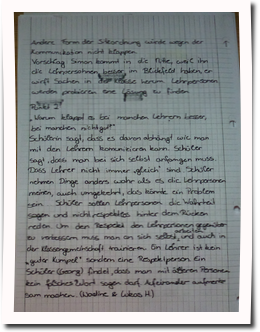 Andere Form der Sitzordnung würde wegen der
Kommunikation nicht klappen.
Vorschlag: Simon kommt in die Mitte, weil ihn
die Lehrpersonen besser im Blickfeld haben, er
wirft Sachen in Klasse herum Lehrpersonen
werden probieren eine Lösung zu finden
Punkt 2:
„Warum klappt es bei manchen Lehrern besser,
bei manchen nicht gut?"
Schülerin sagt, dass es davon abhängt wie man
mit den Lehrern kommunizieren kann. Schüler
sagt, dass man bei sich selbst anfangen muss.
Dass Lehrer nicht immer „gleich" sind. Schüler
nehmen Dinge anders wahr als es die Lehrpersonen
meinen, auch umgekehrt, das könnte ein Problem
sein. Schüler sollen Lehrpersonen die Wahrheit
sagen und nicht respektlos hinter dem Rücken
reden. Um den Respekt den Lehrpersonen gegenüber
zu verbessern muss man an sich selbst arbeiten, und auch in
der Klassengemeinschaft trainieren. Ein Lehrer ist kein
„guter Kumpel" sondern eine Respektperson. Ein
Schüler (Georg) findet, dass man mit älteren Personen
kein falsches Wort sagen darf. Aufeinander aufmerk-
sam machen. (Nadine & Lukas H.)